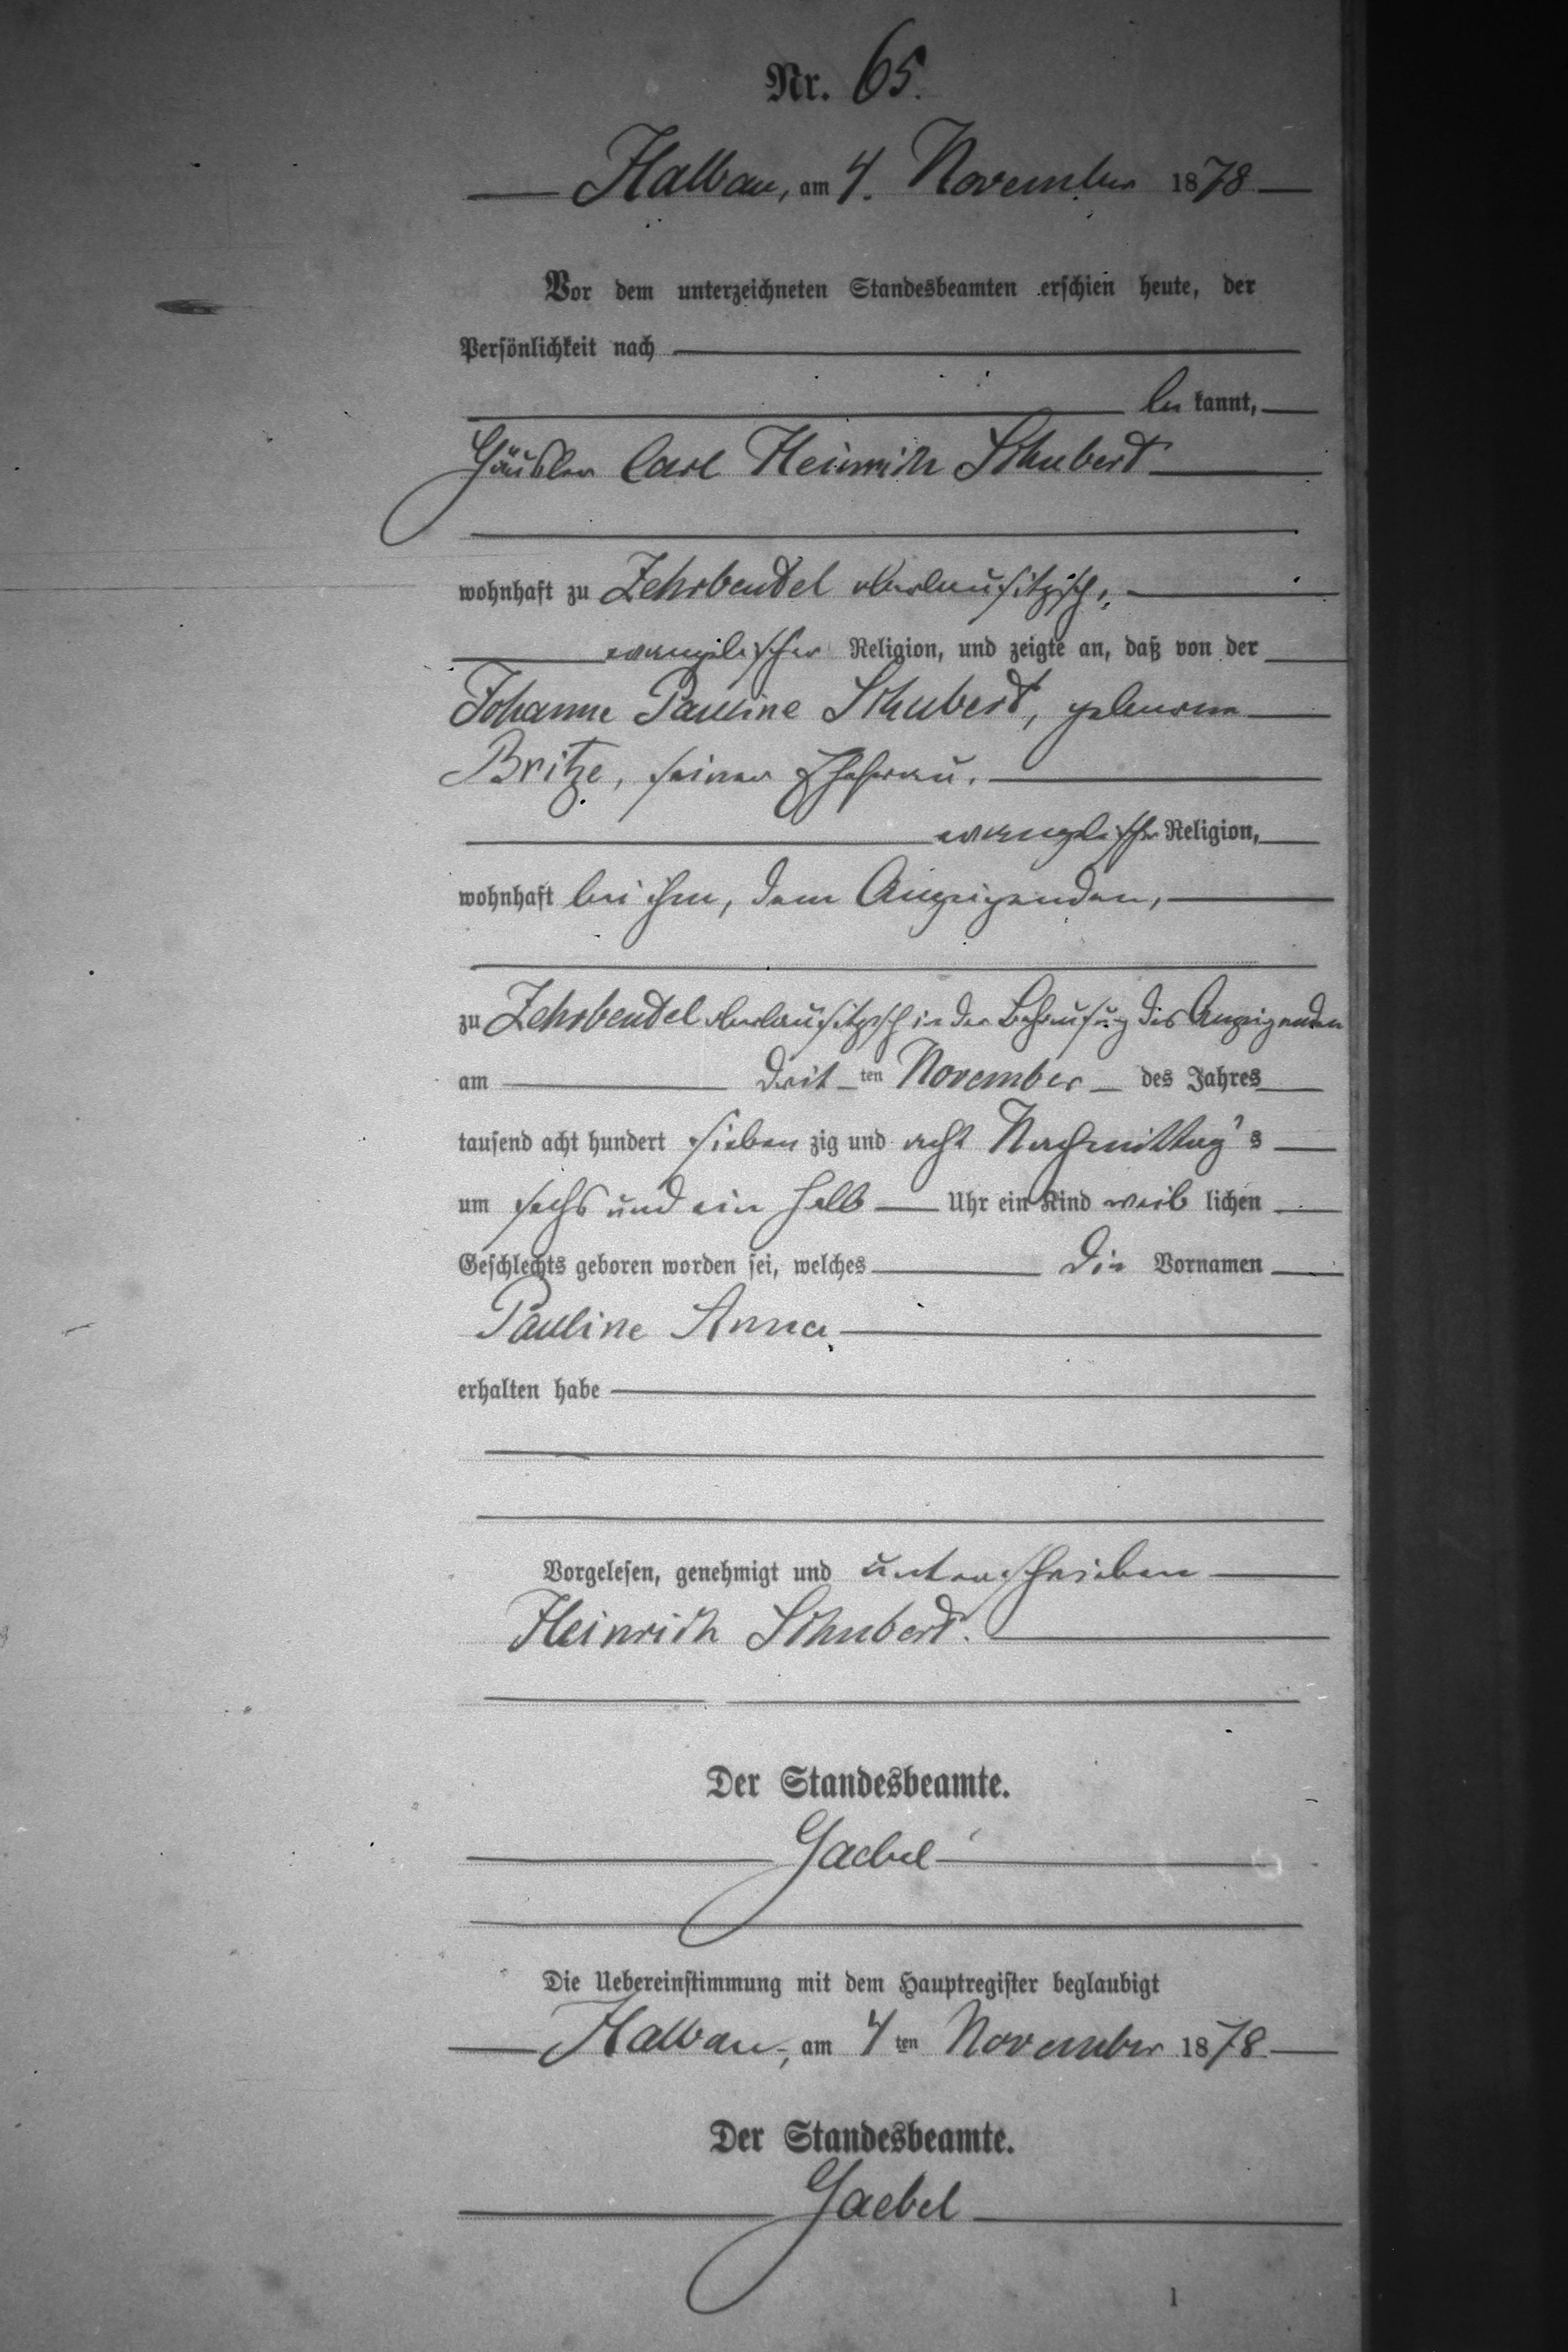 Nr. 65.
Halbau, am 4. November 1878
Vor dem unterzeichneten Standesbeamten erschien heute, der
Persönlichkeit nach
be kannt,
Häusler Carl Heinrich Schubert
wohnhaft zu Zehrbeutel oberlausitzisch,
evangelischer Religion, und zeigte an, daß von der
Johanne Pauline Schubert, geborene
Britze, seiner Ehefrau,
evangelischer Religion,
wohnhaft bei ihm, dem Anzeigenden,
zu Zehrbeutel oberlausitzisch in der Behausung des Anzeigenden
am drit ten November des Jahres
tausend acht hundert sieben zig und acht Nachmittag's
um sechs und ein halb Uhr ein Kind weib lichen
Geschlechts geboren worden sei, welches die Vornamen
Pauline Anna
erhalten habe
Vorgelesen, genehmigt und unterschrieben
Heinrich Schubert.
Der Standesbeamte.
Gaebel
Die Uebereinstimmung mit dem Hauptregister beglaubigt
Halbau, am 4 ten November 1878
Der Standesbeamte.
Gaebel
1